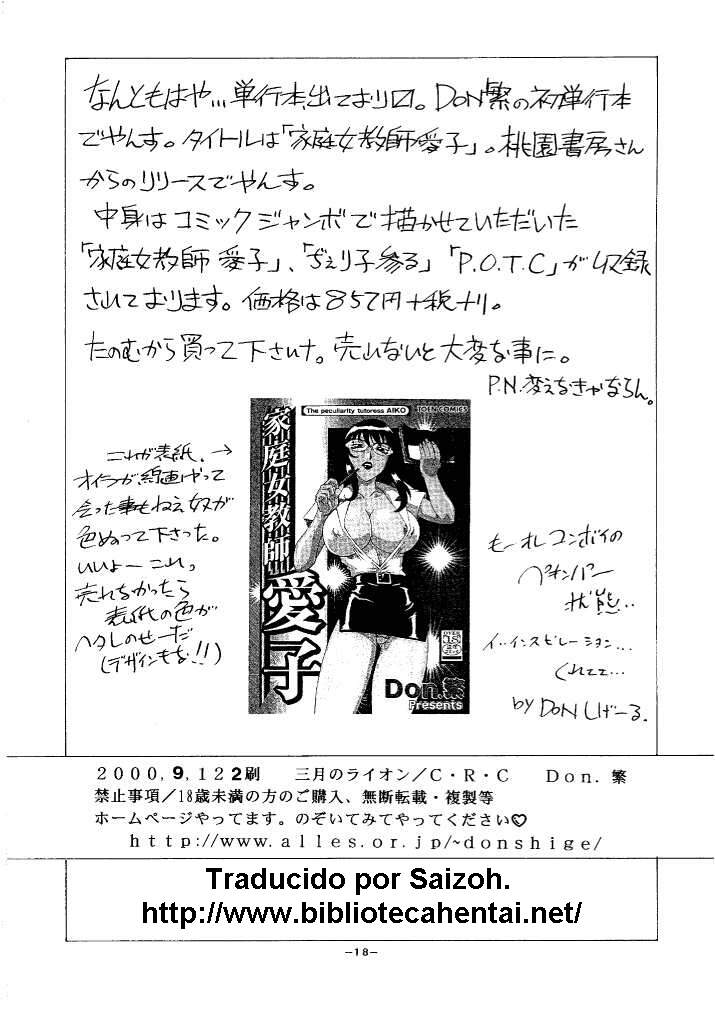 なんともはや… 単行本出ております。DON繁の初単行本
でやんす。タイトルは「家庭女教師愛子」。桃園書房さん
からのリリースでやんす。
中身はコミックジャンボで描かせていただいた
「家庭女教師 愛子」、「ぢぇり子参る」「P.O.T.C」が収録
されております。価格は857円+税ナリ。
たのむから買って下さいナ。売れないと大変な事に。
P.N.変えなきゃならん。
これが表紙、→
オイラが線画やって
会った事もねえ奴が
色ぬって下さった。
いいよー これっ
売れなかったら
表紙の色が
ヘタレのせーだ
(デザインもな!!)
The peculiarity tutoress AIKO
TOEN COMICS
家庭女教師
愛子
Don.繁
Presents
もーれコンボイの
ペキンパー
状態…
イ…インスピレーション…
くれてて…
by DON しげーる.
2000,9,12 2刷 三月のライオン/C・R・C Don. 繁
禁止事項/18歳未満の方のご購入、無断転載・複製等
ホームページやってます。のぞいてみてやってください♡
http://www.alles.or.jp/~donshige/
Traducido por Saizoh.
http://www.bibliotecahentai.net/
-18-